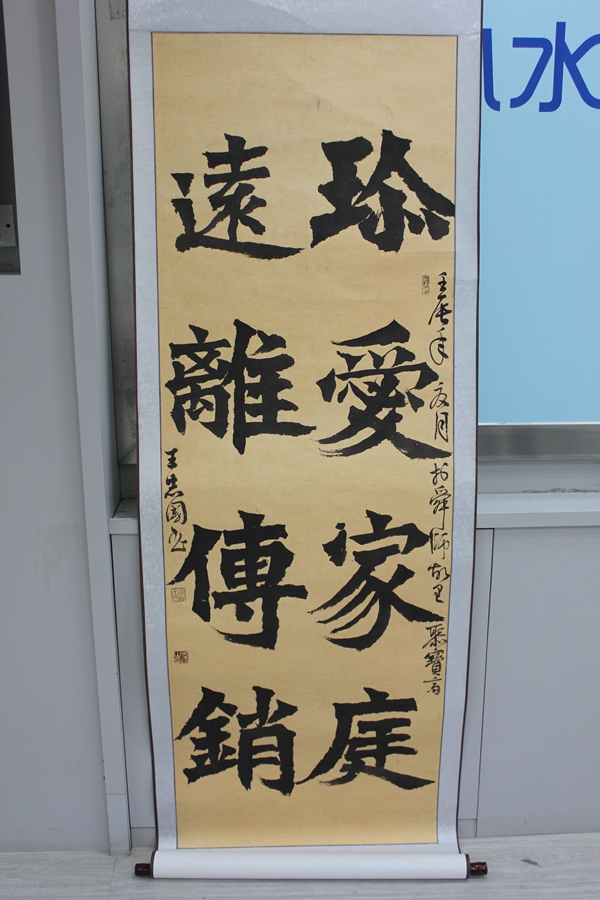 水
珎愛家庭
遠離傳銷
壬辰年夏月於舜師故里聚寶斋
王忠國书